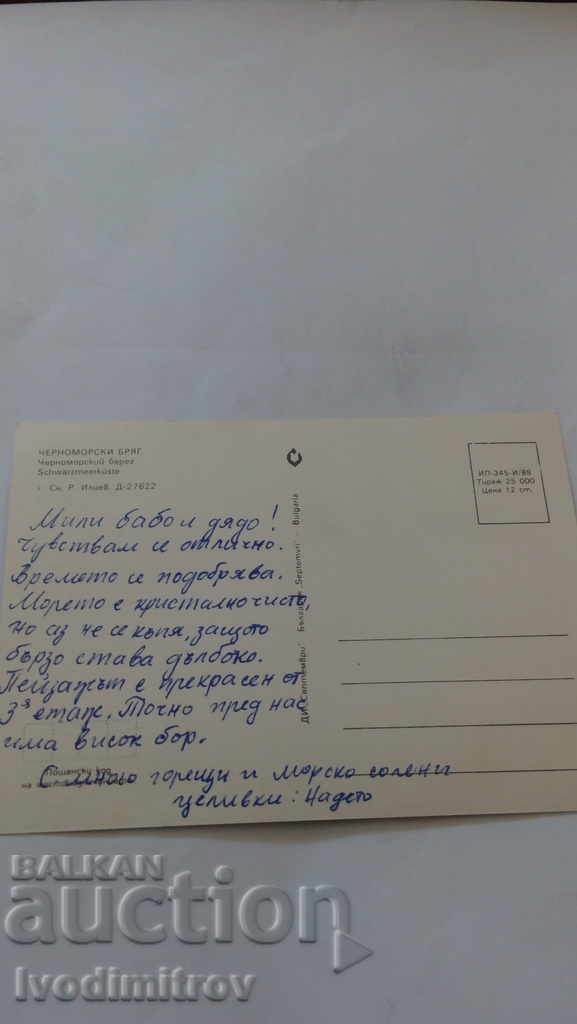 ЧЕРНОМОРСКИ БРЯГ
Черноморский берег
Schwarzmeerküste
Сн. Р. Илиев. Д-27622
ИП-345-И/89
Тираж 25 000
Цена 12 ст.
ДИ „Септември" България „Septemvri" – Bulgaria
Мили бабо и дядо!
Чувствам се отлично.
Времето се подобрява.
Морето е кристално чисто,
но аз не се къпя, защото
бързо става дълбоко.
Пейзажът е прекрасен от
3я етаж. Точно пред нас
има висок бор.
Пощенски код
С много горещи и морско солени
целивки: Надето
BALKAN
auction
Ivodimitrov